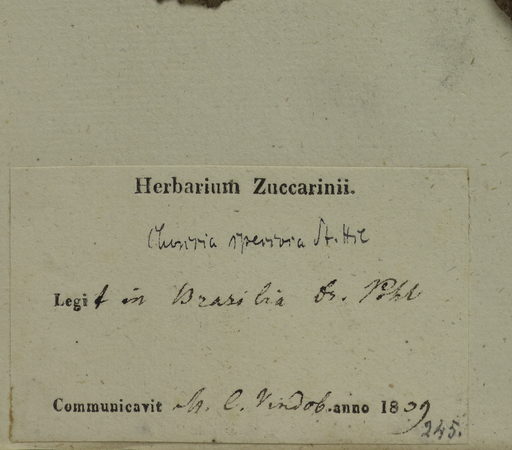 Herbarium Zuccarinii.
Chorisia speciosa St. Hil
Legit in Brasilia Dr. Pohl
Communicavit M. C. Vindob. anno 1839
245.